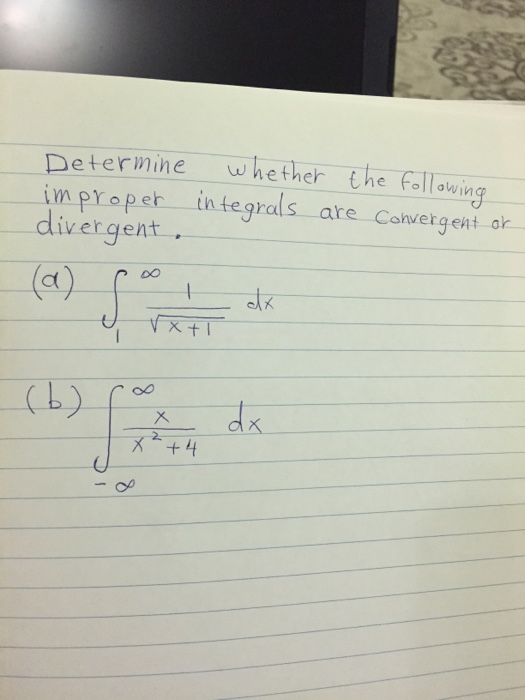 Determine whether the following
improper integrals are convergent or
divergent.
(a) ∫₁^∞ 1/√(x+1) dx
(b) ∫_{-∞}^∞ x/(x²+4) dx